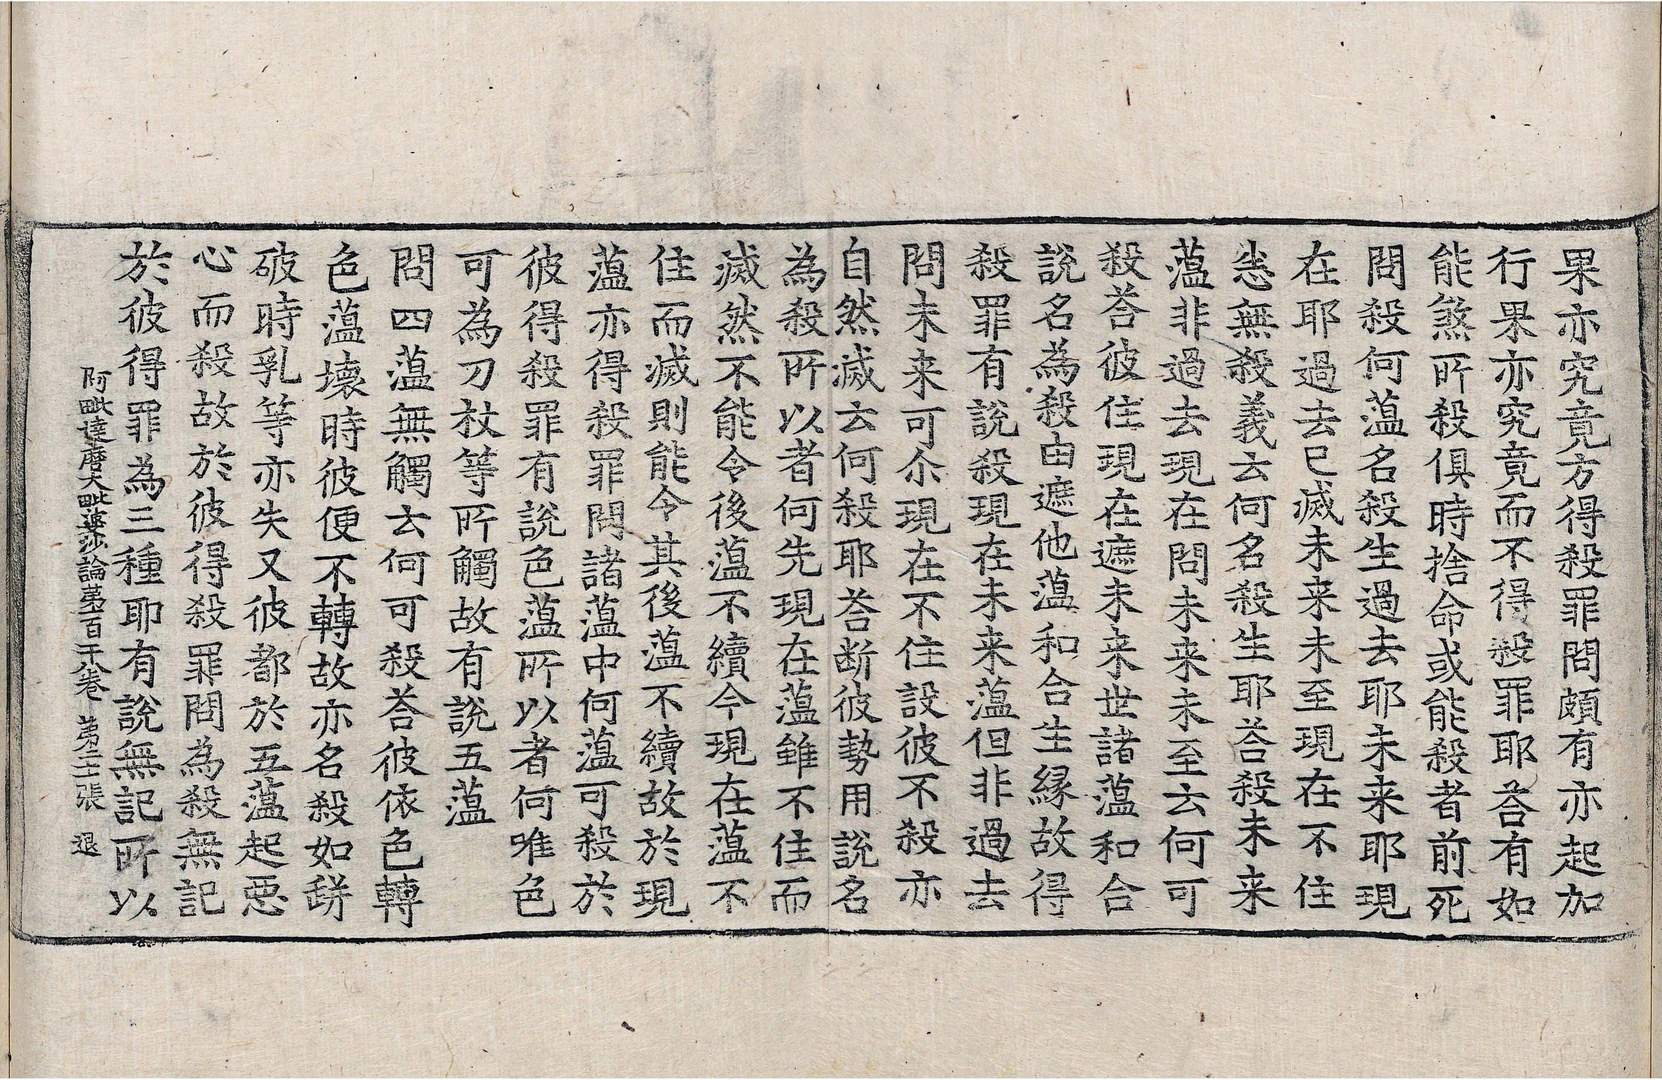 果亦究竟方得殺罪問頗有亦起加
行果亦究竟而不得殺罪耶荅有如
能煞所殺俱時捨命或能殺者前死
問殺何薀名殺生過去耶未来耶現
在耶過去已滅未来未至現在不住
悉無殺義云何名殺生耶荅殺未来
薀非過去現在問未来未至云何可
殺荅彼住現在遮未来世諸薀和合
說名為殺由遮他薀和合生緣故得
殺罪有說殺現在未来薀但非過去
問未来可尒現在不住設彼不殺亦
自然滅云何殺耶荅断彼勢用說名
為殺所以者何先現在薀雖不住而
滅然不能令後薀不續今現在薀不
住而滅則能令其後薀不續故於現
薀亦得殺罪問諸薀中何薀可殺於
彼得殺罪有說色薀所以者何唯色
可為刀杖等所觸故有說五薀
問四薀無觸云何可殺荅彼依色轉
色薀壞時彼便不轉故亦名殺如缾
破時乳等亦失又彼都於五薀起惡
心而殺故於彼得殺罪問為殺無記
於彼得罪為三種耶有說無記所以
阿毗達磨大毗婆沙論第一百一十八卷 第二十張 退